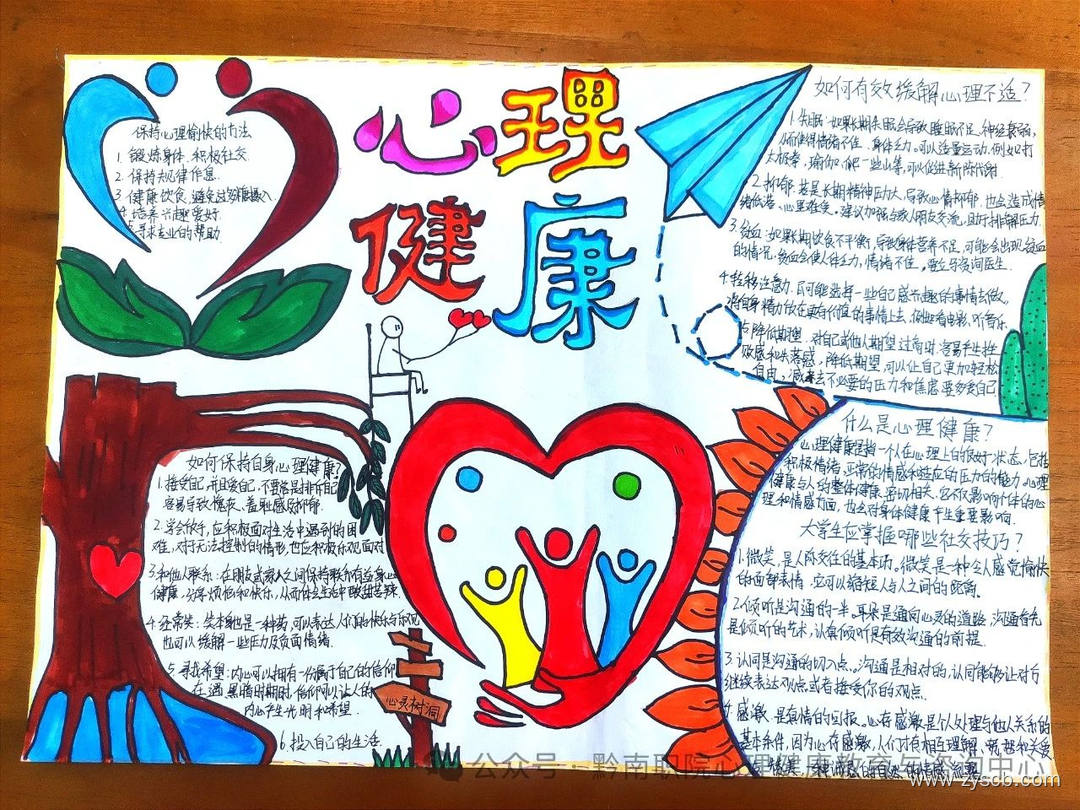 心理
健康
保持心理愉快的方法
1. 锻炼身体,积极社交.
2. 保持规律作息.
3. 健康饮食,避免过多糖摄入.
4. 培养兴趣爱好.
5. 寻求专业的帮助.
如何有效缓解心理不适?
1. 失眠:如果长期失眠会导致睡眠不足,神经衰弱,
从而使得情绪不佳.身体乏力,可以适量运动.例如打
太极拳,瑜伽,爬一些山等,可以促进新陈代谢.
2. 抑郁:若是长期精神压力大,导致心情抑郁,也会造成情
绪低落、心里难受.建议加强与家人朋友交流,及时排解压力.
3. 贫血:如果长期饮食不平衡,导致身体营养不足,可能会出现贫血
的情况,贫血会使人体乏力,情绪不佳,要立马咨询医生.
4. 转移注意力:尽可能选择一些自己感兴趣的事情去做,
将自身精力放在更有价值的事情上去,例如看电影、听音乐
5. 降低期望:对自己或他人期望过高时,容易产生挫
败感和失落感,降低期望,可以让自己更加轻松
自由,减去不必要的压力和焦虑
如何保持自身心理健康?
1. 接受自己,并且爱自己,不要总是排斥自己
容易导致愧疚、羞耻感及抑郁.
2. 学会放手,应积极面对生活中遇到的困
难,对于无法控制的情形,也应积极乐观面对
3. 和他人联系:在朋友或家人之间保持联系有益身心
健康,分享烦恼和快乐,从而体会生活中酸甜苦辣.
4. 经常笑:笑本身也是一种药,可以表达人们的快乐与乐观
也可以缓解一些压力及负面情绪.
5. 寻找希望:内心可以拥有一份属于自己的信仰
在遇黑暗时期时,信仰可以让人的
内心产生光明和希望.
6. 投入自己的生活
心灵树洞
什么是心理健康?
心理健康是指一个人在心理上的良好状态,包括
积极情绪,正常的情感和适应的压力的能力.心理
健康与人的整体健康密切相关.它不仅影响个体的心
理和情感方面,也会对身体健康产生重要影响.
大学生应掌握哪些社交技巧?
1. 微笑,是人际交往的基本功,微笑是一种令人感觉愉快
的面部表情,它可以缩短人与人之间的距离.
2. 倾听是沟通的一半.耳朵是通向心灵的道路,沟通首先
是倾听的艺术,认真倾听是有效沟通的前提.
3. 认同是沟通的切入点.沟通是相对的,认同能够让对方
继续表达观点或者接受你的观点.
4. 感激,是真情的回报.心存感激,是个人处理与他人关系的
基本条件,因为心存感激,人们才有相互理解、
公众号·黔南职院心理健康教育与咨询中心
www.zyscb.com